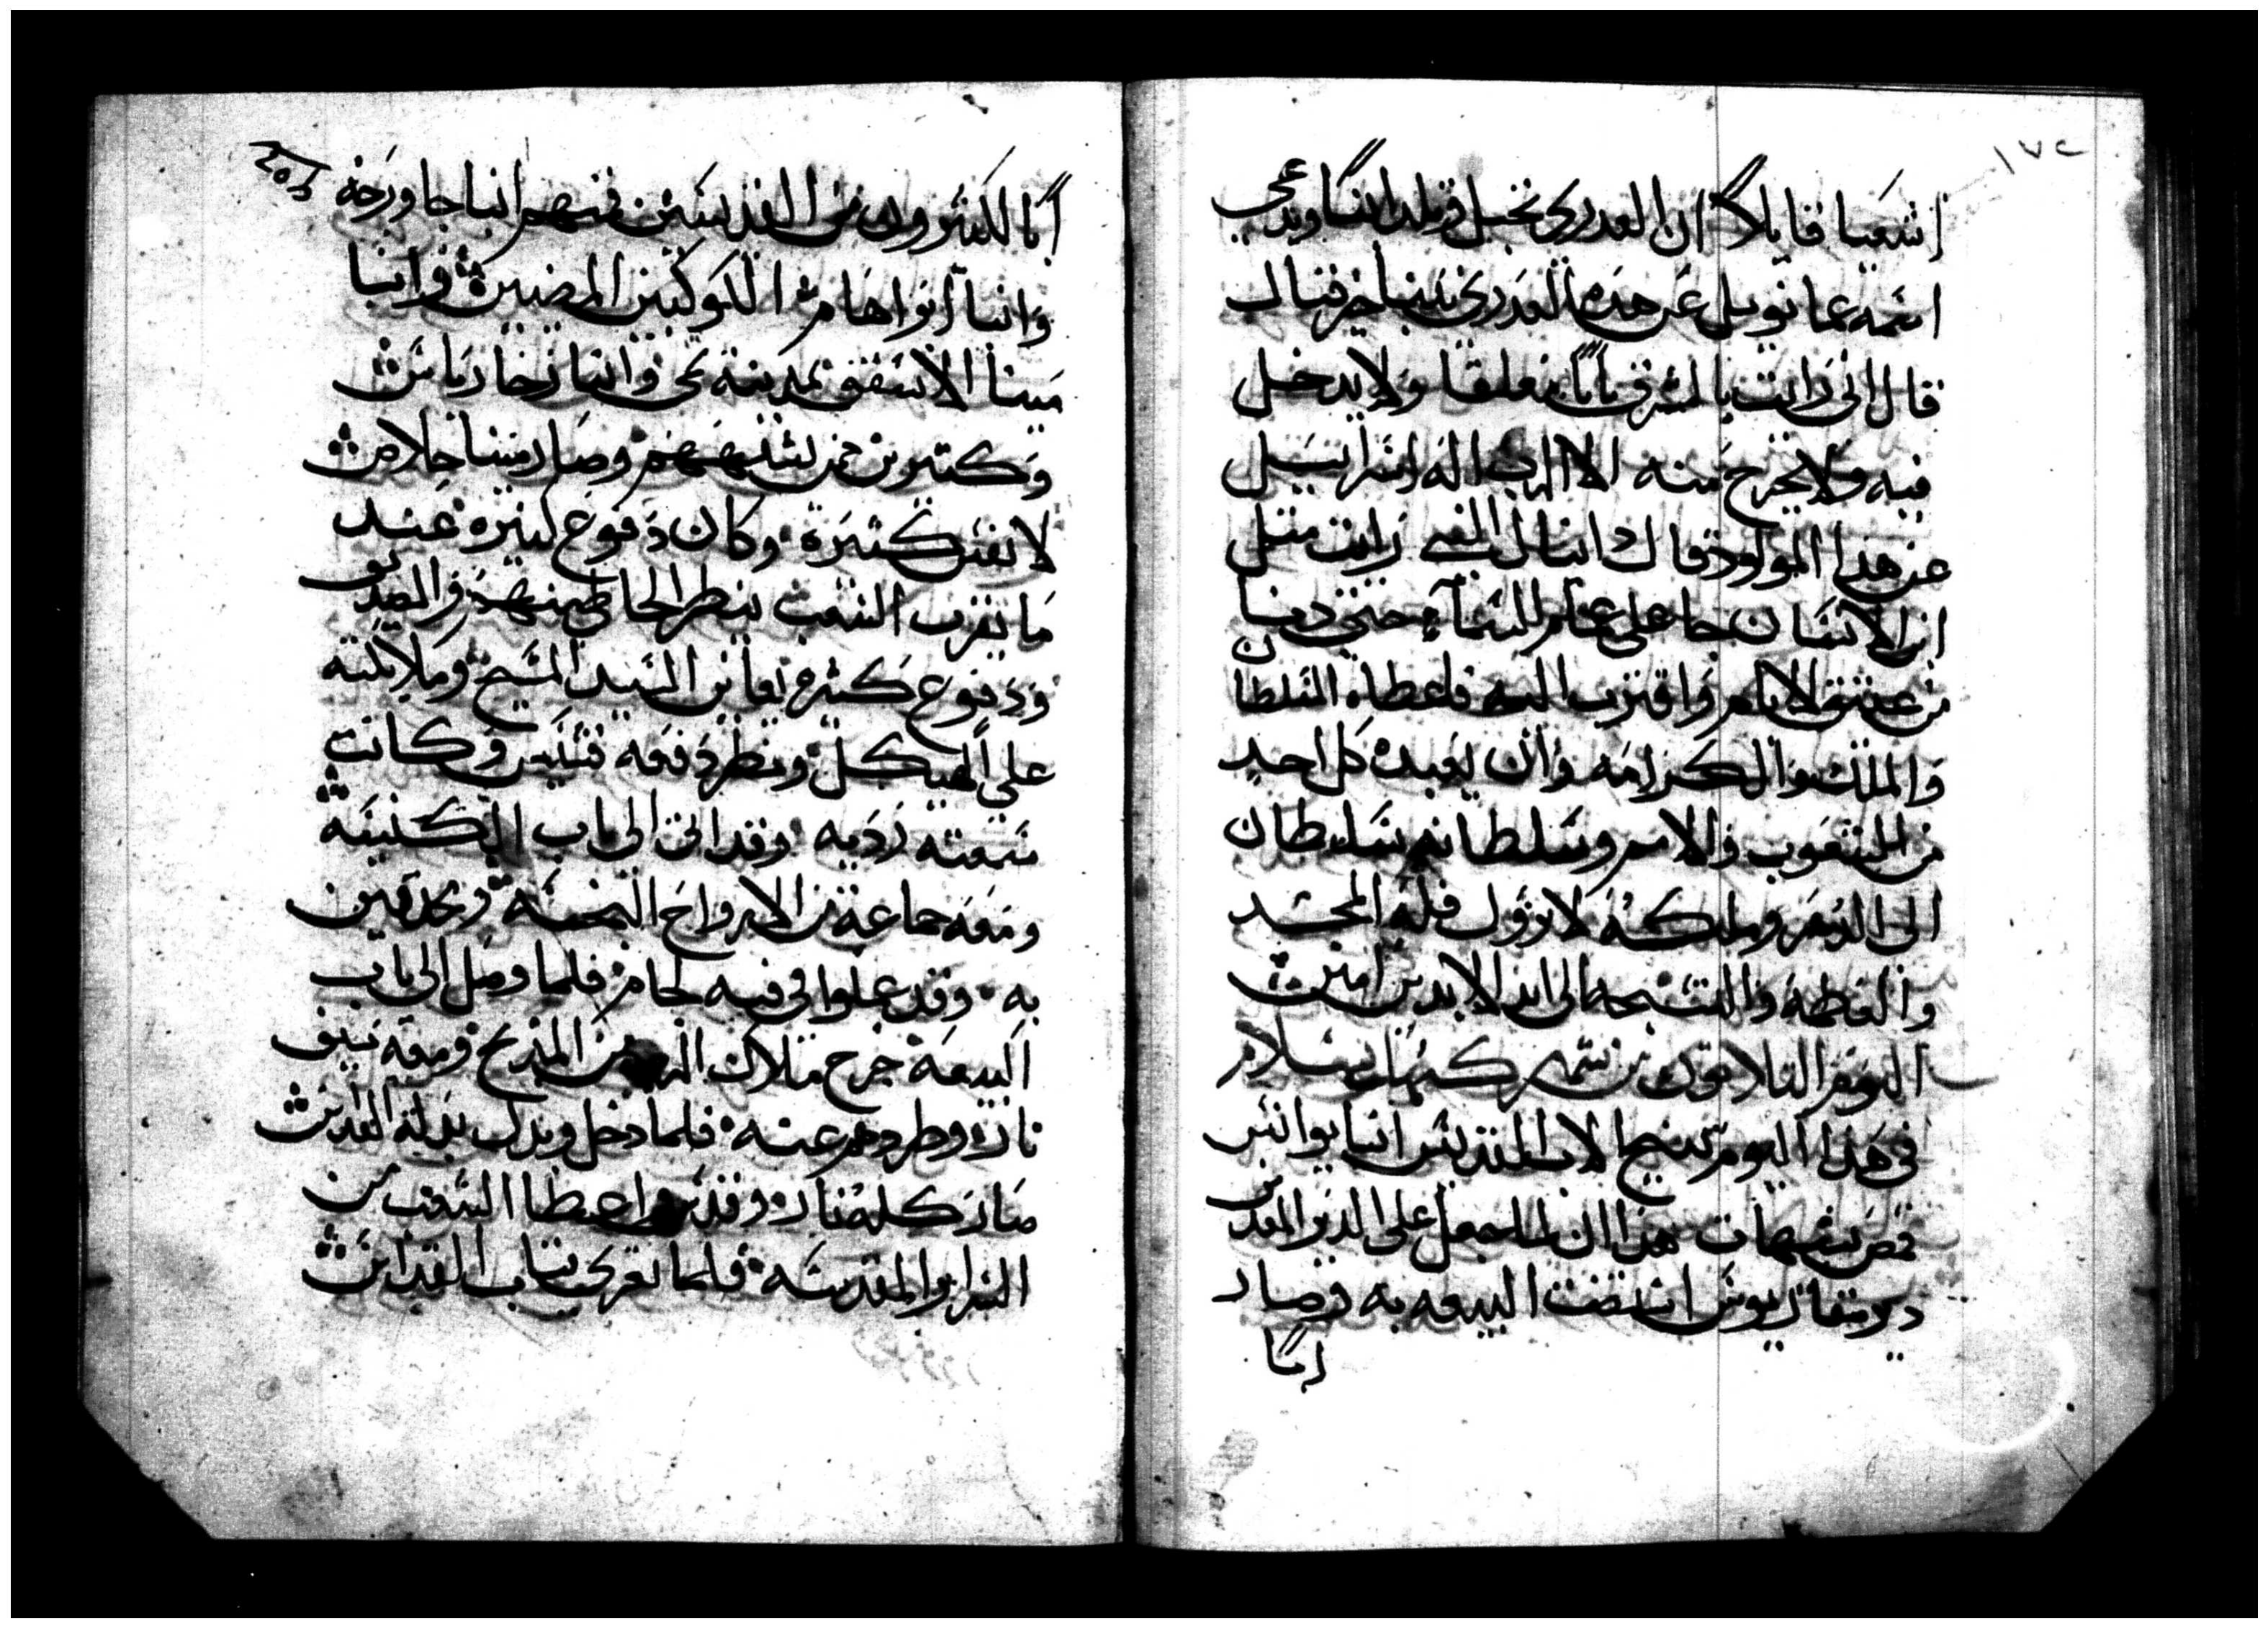 ١٧٢
اشعيا قايلاً ان العدرى تحبل وتلد ابنًا ويدعى
اسمه عمانويل عن هذه العدرى تنبا حزقيال
قال انى رايت بالمشرق بابًا مغلقا ولا يدخل
فيه ولا يخرج منه الا الرب اله اسراييل
عن هذا المولود قال دانيال النبى رايت مثل
ابن الانسان جا على غمام السماء حتى دنا
من عتيق الايام واقترب اليه فاعطاه السلطان
والملك والكرامه وان يعبده كل احد
من الشعوب والامم وسلطانه سلطان
الى الدهر وملكه لا يزول فله المجد
والعظمة والتسبحه الى ابد الابدين امين
اليوم التلاتون من شهر كيهك بسلام
فى هذا اليوم تنيح الاب القديس انبا يوانس
قمص شيهات هذا الاب لما جعل على الدير المقدس
دير مقاريوس استضت البيعه به وصار
ابًا
ابًا لكثيرون من القديسين فمنهم انبا جاورجه
وانبا ابراهام الكوكبين المضيين وانبا
مينا الاسقف بمدينة تمى وانبا زخارياس
وكتيرين ممن يشبههم وصار مينا خلاص
لانفس كثيرة وكان دفوع كثيرة عند
ما يقرب الشعب ينظر الخاطى منهم والصديق
ودفوع كثيرة يعاين السيد المسيح وملايكته
على الهيكل ونظر دفعه قسيس وكانت
سمعته رديه وقد اتى الى باب الكنيسه
ومعه جماعة من الارواح النجسه محدقين
به وقد عملوا فى فيه لجام فلما وصل الى باب
البيعه خرج ملاك الرب من المذبح ومعه سيف
نار وطردهم عنه فلما دخل وبدل بدلة القداس
صار كله نار وقدس واعطا الشعب من
السراير المقدسه فلما نعر كتاب القداس